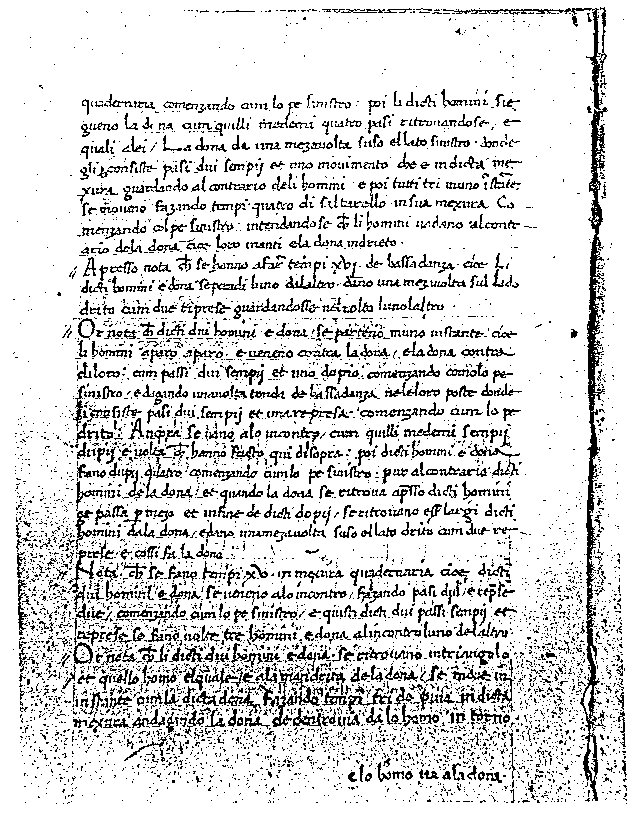 quadernaria comenzando cum lo pe sinistro · poi li dicti homini sie
gueno la dona cum quilli medemi quatro pasi ritrovandose, e
quali alei / La dona da una mezavolta suso el lato sinistro · donde
gli consiste pasi dui sempij et uno movimento che e in dicta me
xura guardando al contrario deli homini e poi tutti tri in uno istate
se moveno fazando tempi quatro di saltarello in sua mexura Co
menzando col pe sinistro · intendandose ch li homini vadano al contr
ario de la dona, cioe loro inanti e la dona indrieto ·
Apresso nota ch se hanno afare tempi xvj de bassadanza cioe Li
dicti homini e dona seperadi luno dalaltro dano una mezavolta sul lado
drito cum due riprese guardandosse nel volto luno laltro
Or nota ch dicti dui homini e dona / se parteno in uno instante cioe
li homini aparo aparo e veneno contra la dona / e la dona contra
di loro : cum passi dui sempij et uno dopio comenzando con lo pe
sinistro / e dagando una volta tonda de bassadanza nele loro poste donde
li consiste pasi dui sempij et una represa comenzando cum lo pe
drito : Ancora se fano alo incontro / cum quilli medemi sempij
dupij e volta ch hanno facto qui disopra : poi dicti homini e dona
fano dupij quatro comenzando cum lo pe sinistro : pur al contrario dicti
homini de la dona / et quando la dona se ritrova apsso dicti homini
ge passa p mezo et infine de dicti dopij / se ritrovano esser largi dicti
homini da la dona / e dano una mezavolta suso el lato drito cum due re
prese e cossi fa la dona
Nota ch se fano tempi xv in mexura quadernaria cioe dicti
dui homini e dona se veneno alo incontro / fazando pasi dui e represe
due / comenzando cum lo pe sinistro / e quisti dicti dui passi sempij et
represe se fano volte tre homini e dona alincontro luno de laltro
Or nota ch li dicti dui homini e dona se ritrovano in triangolo
et quello homo el quale e ala man derita de la dona / se move in
instante cum la dicta dona fazando tempi tri de piva in dicta
mexura andagando la dona de dentro via da lo homo in torno
e lo homo va ala dona ·